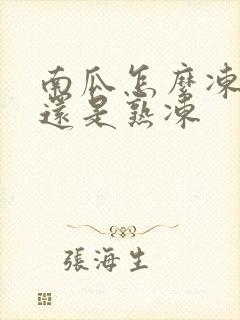 南瓜怎麼凍
還是熟凍
張海生